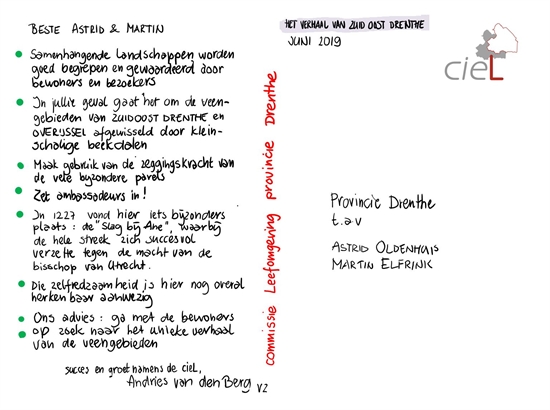 BESTE ASTRID & MARTIN
Samenhangende landschappen worden
goed begrepen en gewaardeerd door
bewoners en bezoekers
In jullie geval gaat het om de veen-
gebieden van ZUIDOOST DRENTHE en
OVERIJSSEL afgewisseld door klein-
schalige beekdalen
Maak gebruik van de zeggingskracht van
de vele byzondere parels
Zet ambassadeurs in!
In 1227 vond hier iets byzonders
plaats: de "Slag bij Ane", waarbij
de hele streek zich succesvol
verzette tegen de macht van de
bisschop van Utrecht.
Die zelfredzaamheid is hier nog overal
herkenbaar aanwezig
Ons advies: ga met de bewoners
op zoek naar het unieke verhaal
van de veengebieden
succes en groet namens de cieL,
Andries van den Berg v2
commissie Leefomgeving provincie Drenthe
HET VERHAAL VAN ZUID OOST DRENTHE
JUNI 2019
cieL
Provincie Drenthe
t.a.v
ASTRID OLDENHUIS
MARTIN ELFRINK